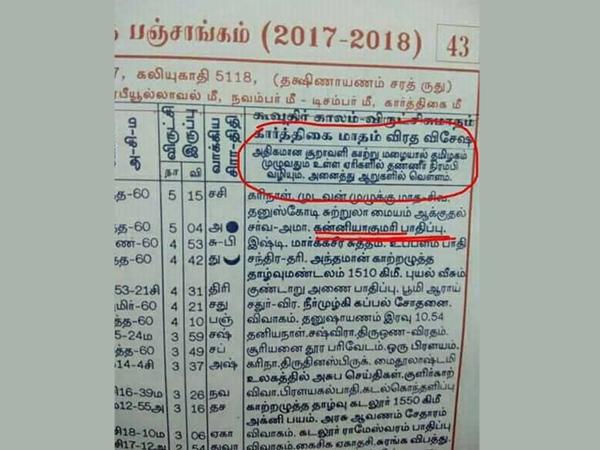 பஞ்சாங்கம் (2017-2018) 43
7, கலியுகாதி 5118, (தக்ஷிணாயணம் சரத் ருது)
ரபீயூல்லாவல் மீ, நவம்பர் மீ - டிசம்பர் மீ, கார்த்திகை மீ
அ-சி-ம விருட்சி இருப்பு வாக்கிய சிரா-திதி கூவுதிர் காலம்-விருட்சிகமாதம்
கார்த்திகை மாதம் விரத விசேஷ
அதிகமான சூறாவளி காற்று மழையால் தமிழகம்
முழுவதும் உள்ள ஏரிகளில் தண்ணீர் நிரம்பி
நா வி வழியும். அனைத்து ஆறுகளில் வெள்ளம்.
த்த-60 5 15 சசி கரிநாள். முடவன் முழுக்கு மாத-சிவ.
தனுஸ்கோடி சுற்றுலா மையம் ஆக்குதல்
த்த-60 5 04 அ சாவ-அமா. கன்னியாகுமரி பாதிப்பு.
ண்-60 4 53 சு-பி இஷ்டி. மார்க்கசிர சுத்தம். உப்பளம் பாதி
-60 4 42 து சந்திர-தரி. அந்தமான் காற்றழுத்த
தாழ்வுமண்டலம் 1510 கிமீ. புயல் வீசும்
53-21சி 4 31 திரி குண்டாறு அணை பாதிப்பு. பூமி ஆராய்
மிர்-60 4 21 சது சதுர்-விர. நீர்மூழ்கி கப்பல் சோதனை.
த்த-60 4 10 பஞ் விவாகம். தனுஷாயணம் இரவு 10.54
5-24ம 3 59 சஷ் தனியநாள்.சஷ்விரா.திருஓண-விரதம்.
ந்த-60 3 49 சப் சூரியனை தூர பரிவேடம்.ஒரு பிரளயம்.
14-4சி 3 37 அஷ் கரிநா.திருதினஸ்பிருக். மைதூலாஷ்டமி
உலகத்தில் அசுப செய்திகள்.குளிர்காற்
சி16-39ம 3 26 நவ விவா.பிரளயகல்பாதி.கடல்கொந்தளிப்பு
ம12-55அ 3 16 தச காற்றழுத்த தாழ்வு கடலூர் 1550 கிமீ
அக்னி பயம். அரசு ஆவணம் சேதாரம்
சி18-10ம 3 06 ஏகா விவாகம். கடலூர் ராமேஸ்வரம் பாதிப்பு
சி17-12அ 2 54 துவா விவாகம்.கைசிக ஏகாதசி.சுரங்க விபத்து.